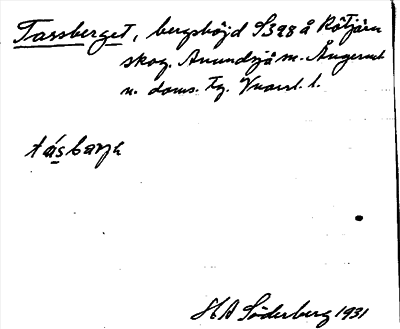 Tassberget, bergshöjd S398 å Rötjärn
skog. Anundsjö sn. Ångerml.
n. doms. Tg.
tásbarjə
HA Söderberg 1931